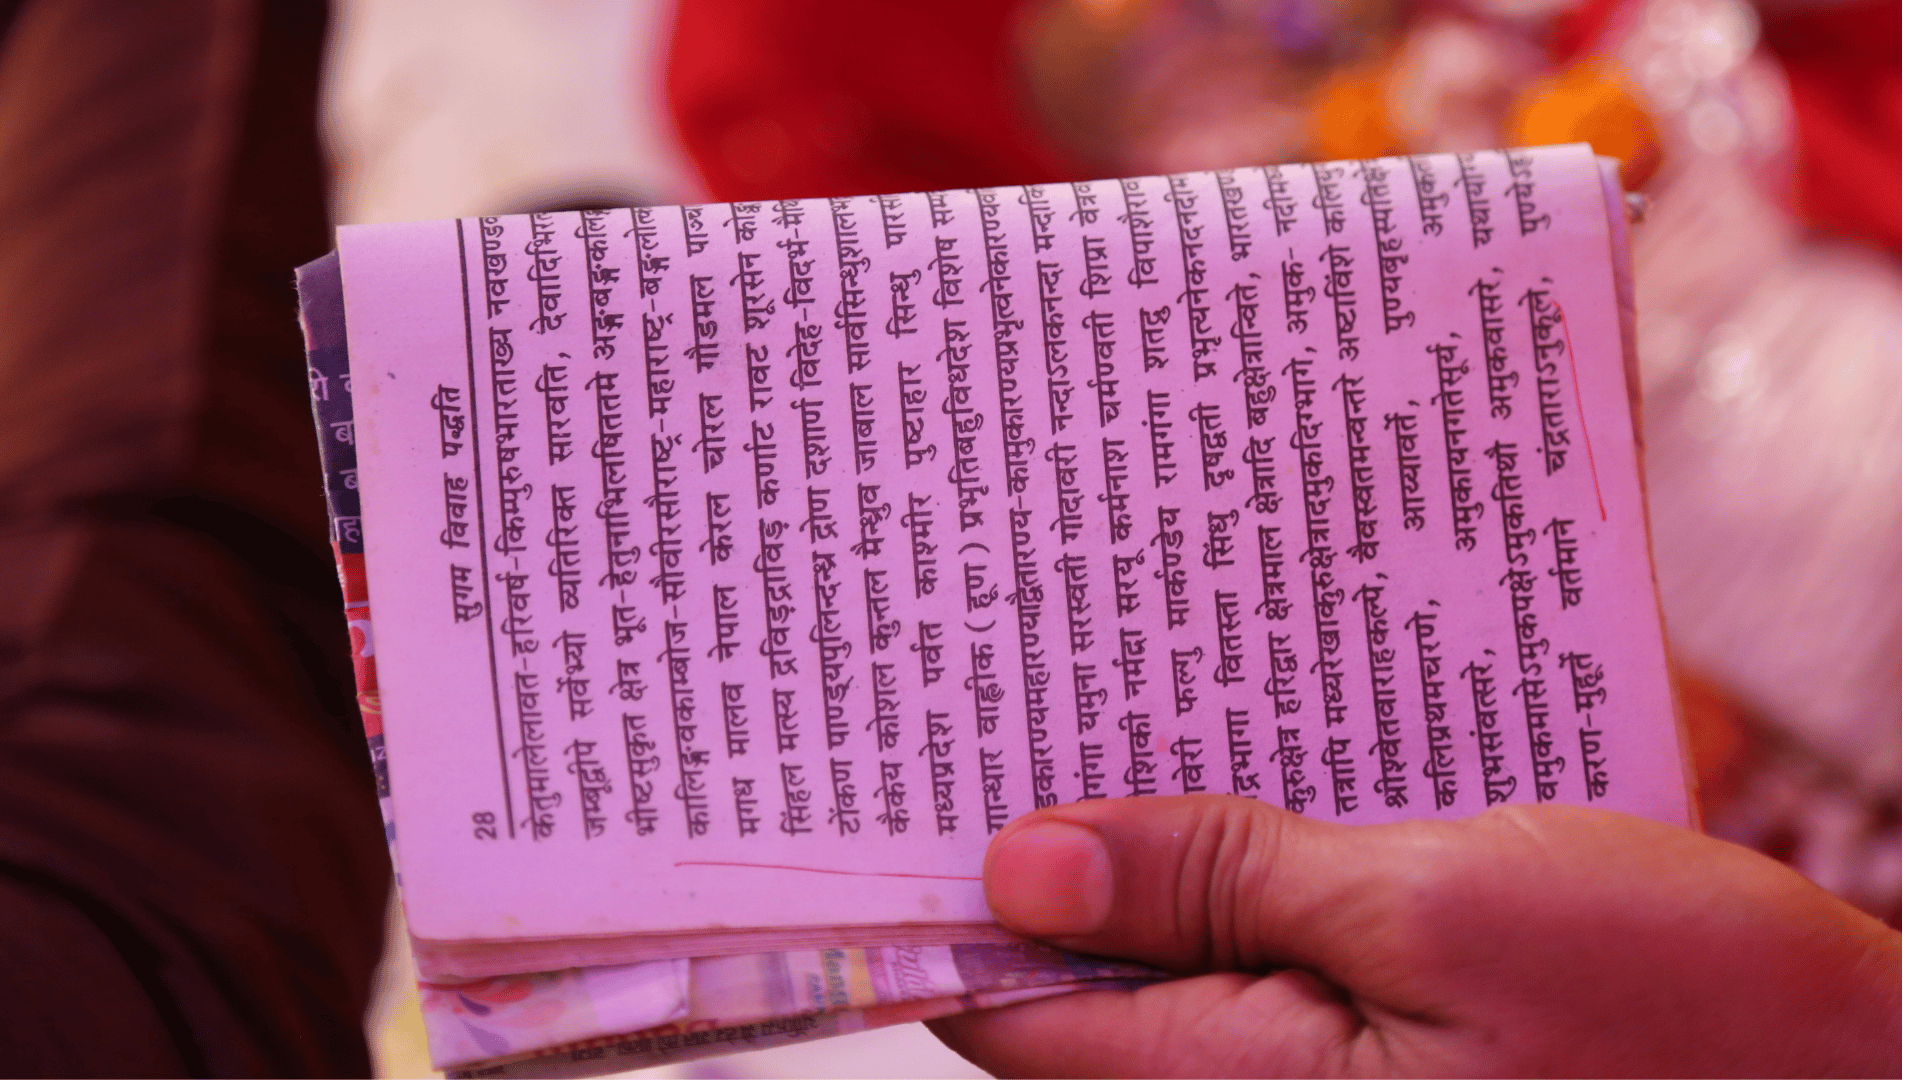 28 सुगम विवाह पद्धति
केतुमालेलावत-हरिवर्ष-किम्पुरुषभारताख्य नवखण्ड
जम्बूद्वीपे सर्वेभ्यो व्यतिरिक्त सारवति, देवादिभिर
भीष्टसुकृत क्षेत्र भूत-हेतुनाभिलषिततमे अङ्ग-बङ्ग-कलि
कालिङ्गक-काम्बोज-सौवीरसौराष्ट्र-महाराष्ट्र-बङ्गलोत्
मगध मालव नेपाल केरल चोरल गौडमल पाञ्च
सिंहल मत्स्य द्रविड़द्राविड़ कर्णाट रावट शूरसेन को
टोंकण पाण्ड्यपुलिन्दन्ध्र द्रोण दशार्ण विदेह-विदर्भ-मैथि
कैकेय कोशल कुन्तल मैन्धुव जाबाल सार्वसिन्धुशालभ
मध्यप्रदेश पर्वत काश्मीर पुष्टाहार सिन्धु पारसी
गान्धार वाह्लीक ( हूण ) प्रभृतिबहुविधदेश विशेष सम
डकारण्यमहारण्यद्वैतारण्य-कामुकारण्यप्रभृत्यनेकारण्यव
गंगा यमुना सरस्वती गोदावरी नन्दाऽलकनन्दा मन्दाकि
शिकी नर्मदा सरयू कर्मनाशा चर्मण्वती शिप्रा वेत्रव
वेरी फल्गु मार्कण्डेय रामगंगा शतद्रु विपाशैराव
द्रभागा वितस्ता सिंधु दृषद्वती प्रभृत्यनेकनदनदीम
कुरुक्षेत्र हरिद्वार क्षेत्रमाल क्षेत्रादि बहुक्षेत्रान्विते, भारतखण
तत्रापि मध्यरेखाकुरुक्षेत्रादमुकदिग्भागे, अमुक- नदीमध
श्रीश्वेतवाराहकल्पे, वैवस्वतमन्वन्तरे अष्टाविंशे कलियु
कलिप्रथमचरणे, आर्य्यावर्ते, पुण्यबृहस्पतिक्षे
शुभसंवत्सरे, अमुकायनगतेसूर्य, अमुकत
वमुकमासेऽमुकपक्षेऽमुकतिथौ अमुकवासरे, यथायो
करण-मुहूर्ते वर्तमाने चंद्रताराऽनुकूले, पुण्येऽह